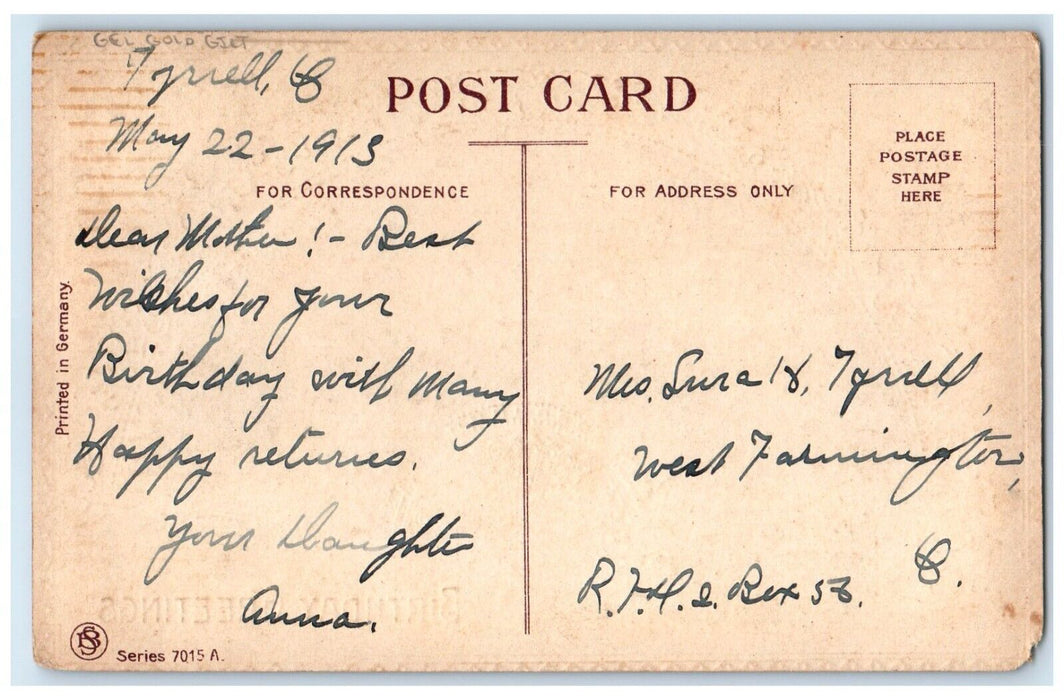 GEL GOLD GILT
Tyrrell, O
May 22-1913
POST CARD
PLACE
POSTAGE
STAMP
HERE
FOR CORRESPONDENCE
FOR ADDRESS ONLY
Dear Mother!- Best
Wishes for your
Birthday with Many
Happy returns.
Your Daughter
Anna.
Mrs. Sura H. Tyrrell,
West Farmington,
O.
R.F.D. 2. Box 58.
Printed in Germany.
BIRTHDAY GREETINGS
BS
Series 7015 A.